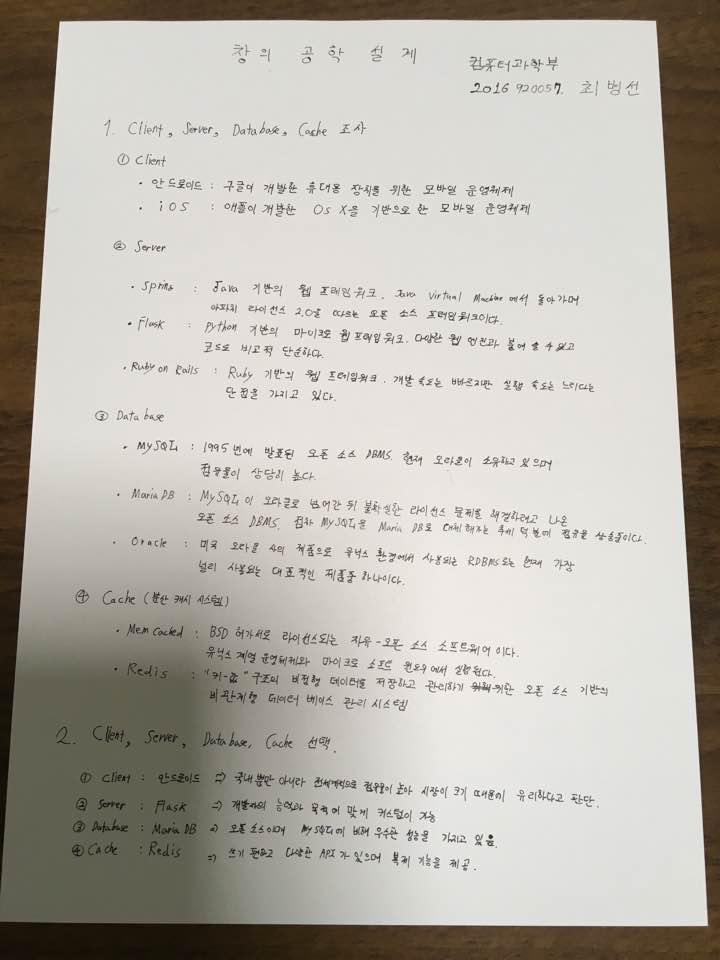 창의 공학 설계
컴퓨터과학부
2016920057. 최병선
1. Client, Server, Database, Cache 조사
① Client
· 안드로이드 : 구글이 개발한 휴대용 장치를 위한 모바일 운영체제
· iOS : 애플이 개발한 OS X을 기반으로 한 모바일 운영체제
② Server
· Spring : Java 기반의 웹 프레임워크. Java Virtual Machine에서 돌아가며
아파치 라이선스 2.0을 따르는 오픈 소스 프레임워크이다.
· Flask : Python 기반의 마이크로 웹프레임워크. 다양한 웹 엔진과 붙여 쓸 수 있고
코드도 비교적 단순하다.
· Ruby on Rails : Ruby 기반의 웹 프레임워크. 개발 속도는 빠르지만 실행 속도는 느리다는
단점을 가지고 있다.
③ Database
· MySQL : 1995년에 발표된 오픈 소스 DBMS. 현재 오라클이 소유하고 있으며
점유율이 상당히 높다.
· Maria DB : MySQL이 오라클로 넘어간 뒤 불확실한 라이선스 문제를 해결하려고 나온
오픈 소스 DBMS. 점차 MySQL을 Maria DB로 대체해가는 추세 덕분에 점유율 상승중이다.
· Oracle : 미국 오라클 사의 제품으로 유닉스 환경에서 사용되는 RDBMS로는 현재 가장
널리 사용되는 대표적인 제품중 하나이다.
④ Cache (분산 캐시 시스템)
· Mem cached : BSD 허가서로 라이선스되는 자유-오픈 소스 소프트웨어이다.
유닉스 계열 운영체제와 마이크로 소프트 윈도우에서 실행된다.
· Redis : "키-값" 구조의 비정형 데이터를 저장하고 관리하기 위한 오픈 소스 기반의
비관계형 데이터 베이스 관리 시스템
2. Client, Server, Database, Cache 선택.
① Client : 안드로이드 => 국내뿐만 아니라 전세계적으로 점유율이 높아 시장이 크기 때문에 유리하다고 판단.
② Server : Flask => 개발자의 능력과 목적에 맞게 커스텀이 가능
③ Database : Maria DB => 오픈소스이며 MySQL에 비해 우수한 성능을 가지고 있음.
④ Cache : Redis => 쓰기 편하고 다양한 API가 있으며 복제 기능을 제공.